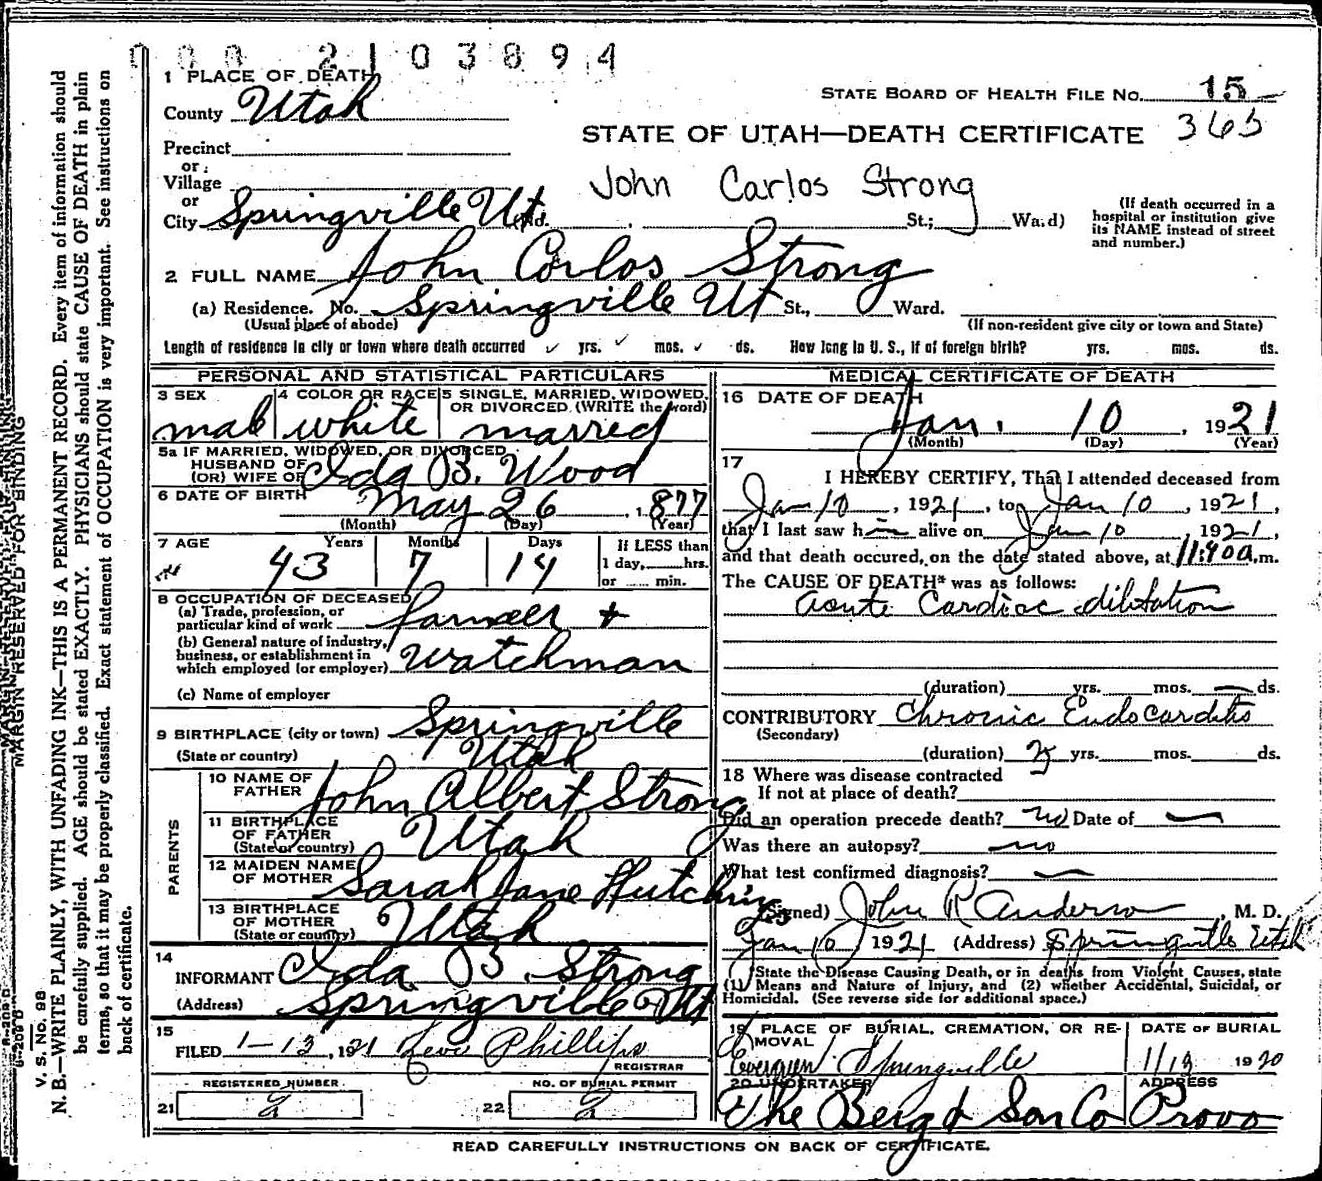 000 2103894
1 PLACE OF DEATH
County Utah
STATE BOARD OF HEALTH FILE No. 15
365
STATE OF UTAH—DEATH CERTIFICATE
Precinct
or
Village
or
John Carlos Strong
City Springville Ut. No. St.; Ward)
(If death occurred in a hospital or institution give its NAME instead of street and number.)
2 FULL NAME John Carlos Strong
(a) Residence. No. Springville Ut St., Ward.
(Usual place of abode) (If non-resident give city or town and State)
Length of residence in city or town where death occurred ✓ yrs. ✓ mos. ✓ ds. How long in U. S., if of foreign birth? yrs. mos. ds.
PERSONAL AND STATISTICAL PARTICULARS
3 SEX 4 COLOR OR RACE 5 SINGLE, MARRIED, WIDOWED, OR DIVORCED (WRITE the word)
male white married
5a IF MARRIED, WIDOWED, OR DIVORCED
HUSBAND OF
(OR) WIFE OF Ida B. Wood
6 DATE OF BIRTH May 26, 1877
(Month) (Day) (Year)
7 AGE Years Months Days If LESS than
43 7 14 1 day, hrs.
or min.
8 OCCUPATION OF DECEASED
(a) Trade, profession, or
particular kind of work farmer +
(b) General nature of industry,
business, or establishment in
which employed (or employer) watchman
(c) Name of employer
9 BIRTHPLACE (city or town) Springville
(State or country) Utah
PARENTS
10 NAME OF
FATHER John Albert Strong
11 BIRTHPLACE
OF FATHER
(State or country) Utah
12 MAIDEN NAME
OF MOTHER Sarah Jane Hutchings
13 BIRTHPLACE
OF MOTHER
(State or country) Utah
14
INFORMANT Ida B. Strong
(Address) Springville Ut
15
FILED 1-13, 1921 Phillips
REGISTRAR
REGISTERED NUMBER NO. OF BURIAL PERMIT
21 2 22 2
MEDICAL CERTIFICATE OF DEATH
16 DATE OF DEATH
Jan. 10, 1921
(Month) (Day) (Year)
17
I HEREBY CERTIFY, That I attended deceased from
Jan 10, 1921, to Jan 10, 1921,
that I last saw him alive on Jan 10 1921,
and that death occured, on the date stated above, at 11:40 a.m.
The CAUSE OF DEATH* was as follows:
Acute Cardiac dilatation
(duration) yrs. mos. — ds.
CONTRIBUTORY Chronic Endocarditis
(Secondary)
(duration) yrs. mos. ds.
18 Where was disease contracted
If not at place of death?
Did an operation precede death? no Date of —
Was there an autopsy? no
What test confirmed diagnosis? —
(Signed) John R Anderson, M. D.
Jan 10 1921 (Address) Springville Utah
*State the Disease Causing Death, or in deaths from Violent Causes, state
(1) Means and Nature of Injury, and (2) whether Accidental, Suicidal, or
Homicidal. (See reverse side for additional space.)
19 PLACE OF BURIAL, CREMATION, OR REMOVAL DATE OF BURIAL
Evergreen Springville 1/13 1920
20 UNDERTAKER ADDRESS
The Berg & Son Co Provo
READ CAREFULLY INSTRUCTIONS ON BACK OF CERTIFICATE.
MARGIN RESERVED FOR BINDING
V. S. No. 98
N. B.—WRITE PLAINLY, WITH UNFADING INK—THIS IS A PERMANENT RECORD. Every item of information should
be carefully supplied. AGE should be stated EXACTLY. PHYSICIANS should state CAUSE OF DEATH in plain
terms, so that it may be properly classified. Exact statement of OCCUPATION is very important. See instructions on
back of certificate.